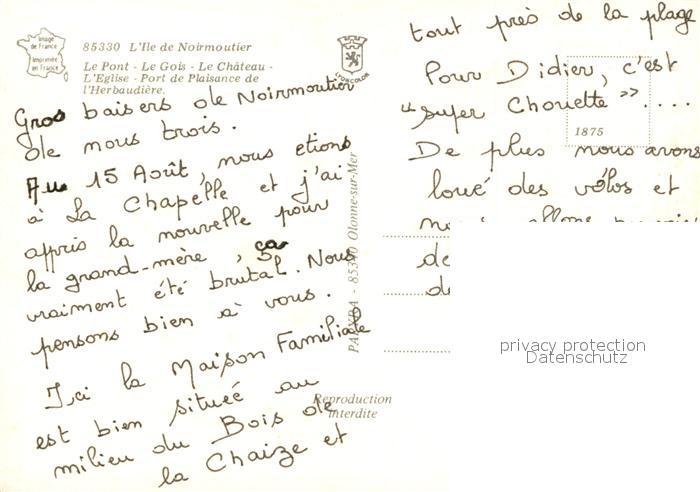 Image
de France
Imprimée
en France
85330 L'Ile de Noirmoutier
Le Pont - Le Gois - Le Château -
L'Eglise - Port de Plaisance de
l'Herbaudière.
LYONCOLOR
Gros baisers de Noirmoutier
de nous trois.
Au 15 Août, nous etions
à La Chapelle et j'ai
appris la nouvelle pour
la grand-mère, ça
vraiment été brutal. Nous
pensons bien à vous.
Ici la Maison Familiale
est bien située au
milieu du Bois de
la Chaize et
tout près de la plage
Pour Didier, c'est
"super Chouette"....
1875
De plus nous avons
loué des vélos et
allons
de
Olonne-sur-Mer
Reproduction
interdite
privacy protection
Datenschutz